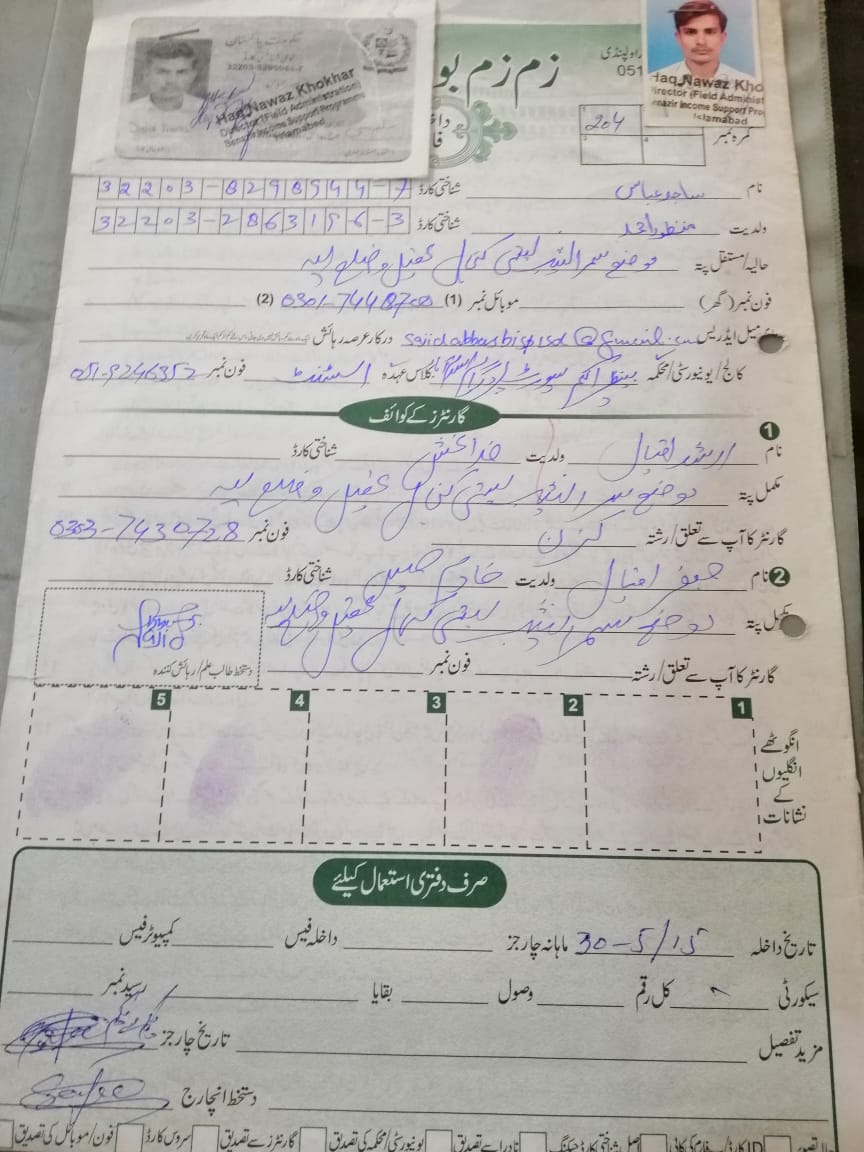 حکومت پاکستان
Haq Nawaz Khokhar
Director (Field Administration)
Benazir Income Support Programme
Islamabad
زم زم بو
راولپنڈی
051
Haq Nawaz Kho
Director (Field Administ
enazir Income Support Pro
Islamabad
داخلہ
فا
کمرہ نمبر 204
نام ساجد عباس شناختی کارڈ 32203-8298944-7
ولدیت منظور احمد شناختی کارڈ 32203-2863196-3
حالیہ/مستقل پتہ موضع سمرا نشیب بستی تحصیل و ضلع لیہ
فون نمبر (گھر) موبائل نمبر (1) 0301-7448700 (2)
ای میل ایڈریس sajidabbasbispisd@gmail.com درکار عرصہ رہائش
کالج/یونیورسٹی/محکمہ بینظیر انکم سپورٹ پروگرام اسلام آباد کلاس عہدہ اسسٹنٹ فون نمبر 051-9246352
گارنٹرز کے کوائف
1
نام ارشد اقبال ولدیت خدا بخش شناختی کارڈ
مکمل پتہ موضع سمرا نشیب بستی تحصیل و ضلع لیہ
گارنٹر کا آپ سے تعلق/رشتہ کزن فون نمبر 0303-7430728
2 نام جعفر اقبال ولدیت خادم حسین شناختی کارڈ
مکمل پتہ موضع سمرا نشیب بستی تحصیل و ضلع لیہ
گارنٹر کا آپ سے تعلق/رشتہ فون نمبر
دستخط طالب علم/رہائش کنندہ
1 2 3 4 5
انگوٹھے
انگلیوں
کے
نشانات
صرف دفتری استعمال کیلئے
تاریخ داخلہ 30-5/15 ماہانہ چارجز داخلہ فیس کمپیوٹر فیس
سیکورٹی کل رقم وصول بقایا رسید نمبر
مزید تفصیل تاریخ چارجز
دستخط انچارج
ID کارڈ/ب فارم کی کاپی اصل شناختی کارڈ چیکنگ نادرا سے تصدیق یونیورسٹی/محکمہ کی تصدیق گارنٹر سے تصدیق سروس کارڈ فون/موبائل کی تصدیق